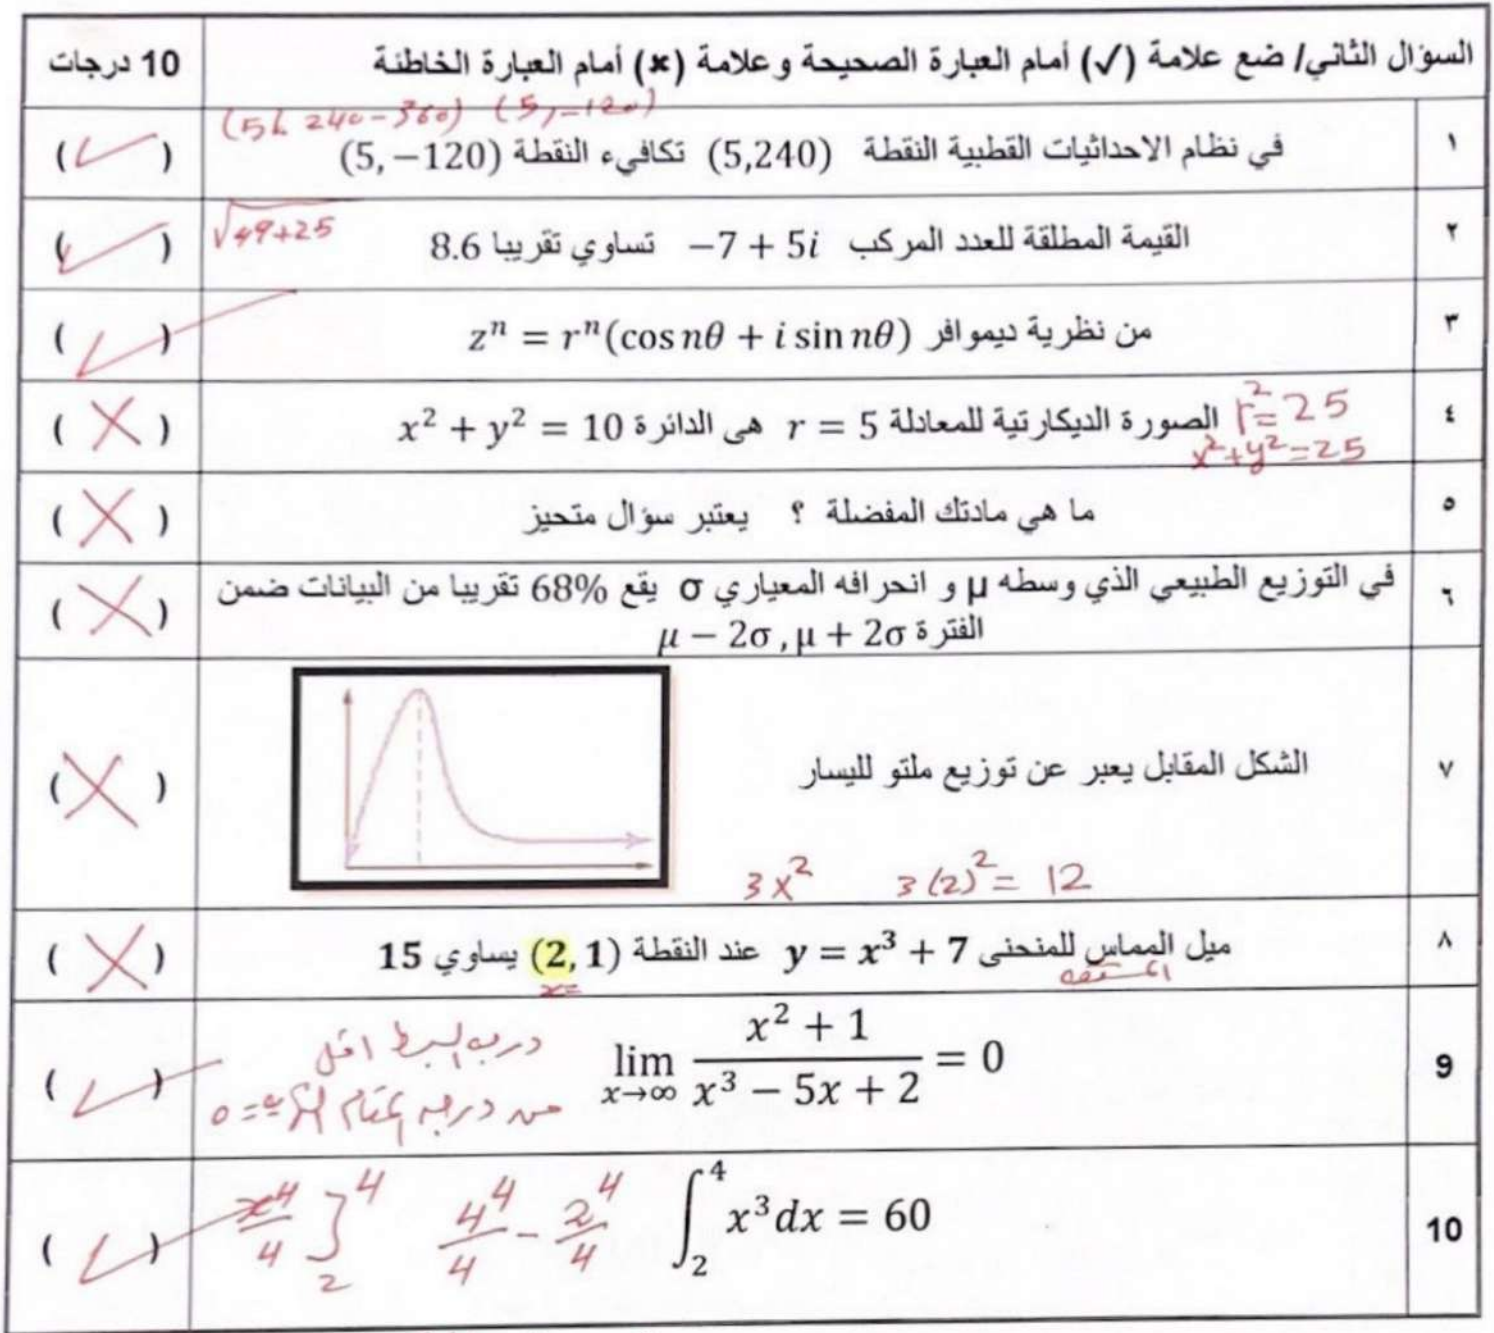 السؤال الثاني/ ضع علامة (✓) أمام العبارة الصحيحة وعلامة (×) أمام العبارة الخاطئة
10 درجات
(5, 240-360) (5,-120)
١ في نظام الاحداثيات القطبية النقطة (5,240) تكافيء النقطة (5, −120) (✓)
٢ القيمة المطلقة للعدد المركب −7 + 5i تساوي تقريبا 8.6 √49+25 (✓)
٣ من نظرية ديموافر zⁿ = rⁿ(cos nθ + i sin nθ) (✓)
٤ r²=25 الصورة الديكارتية للمعادلة r = 5 هى الدائرة x² + y² = 10 (×)
x²+y²=25
٥ ما هي مادتك المفضلة ؟ يعتبر سؤال متحيز (×)
٦ في التوزيع الطبيعي الذي وسطه μ و انحرافه المعياري σ يقع 68% تقريبا من البيانات ضمن (×)
الفترة μ − 2σ , μ + 2σ
٧ الشكل المقابل يعبر عن توزيع ملتو لليسار (×)
3x² 3(2)² = 12
٨ ميل المماس للمنحنى y = x³ + 7 عند النقطة (2, 1) يساوي 15 (×)
المشتقه x=
9 lim x→∞ (x² + 1)/(x³ − 5x + 2) = 0 (✓)
درجه البسط اقل
من درجه المقام =0
10 ∫₂⁴ x³dx = 60 4⁴/4 - 2⁴/4 x⁴/4 ]₂⁴ (✓)